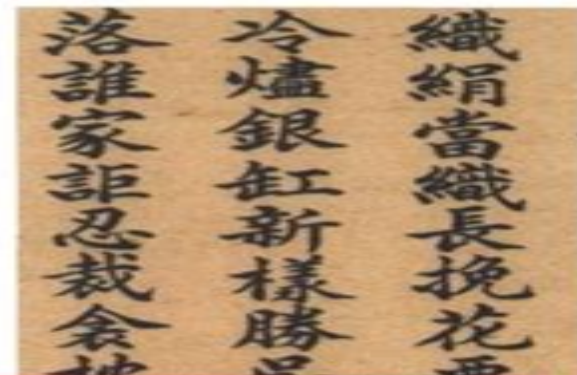 織絹當織長挽花要
冷燼銀缸新樣勝
落誰家詎忍裁衾